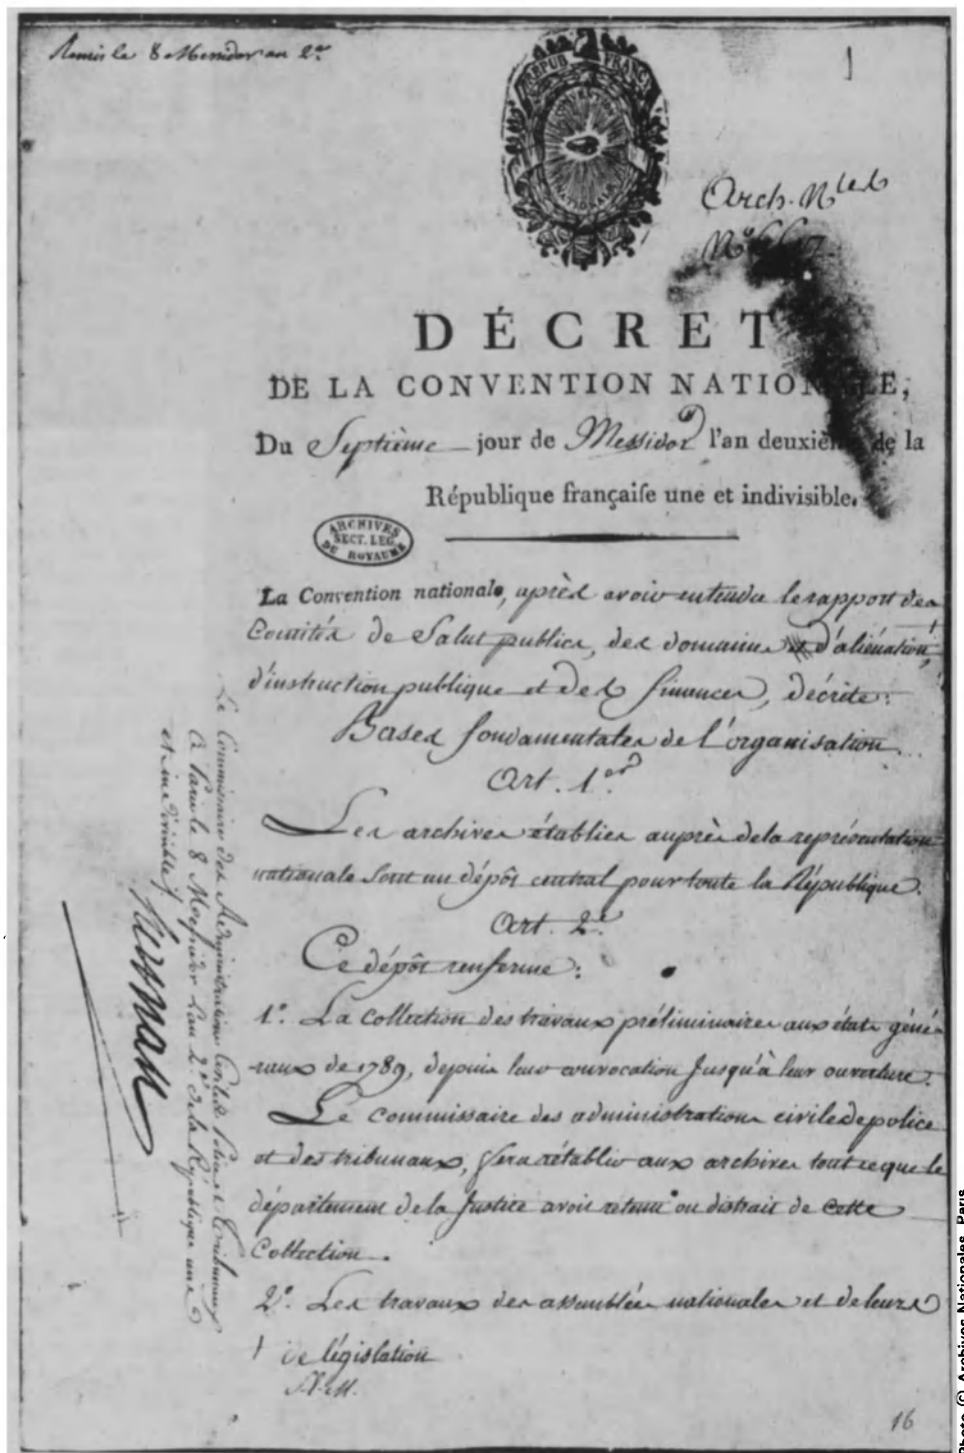 Remis le 8 Messidor an 2.e
RÉPUB. FRANC.
CONVENTION
NATIONALE
Arch. N.les
N.o
DÉCRET
DE LA CONVENTION NATIONALE,
Du Septième jour de Messidor l'an deuxième de la
République françaiſe une et indivisible.
ARCHIVES
SECT. LEG.
DU ROYAUME
La Convention nationale, après avoir entendu le rapport des
Comités de Salut public, des domaines et d'aliénation,
d'instruction publique et des finances, décrète:
Bases fondamentales de l'organisation
Art. 1.er
Les archives établies auprès de la représentation
nationale sont un dépôt central pour toute la République.
Art. 2.e
Ce dépôt renferme:
1.o La collection des travaux préliminaires aux états géné-
raux de 1789, depuis leur convocation jusqu'à leur ouverture.
Le commissaire des administrations civile de police
et des tribunaux, fera rétablir aux archives tout ce que le
département de la Justice avoit retenu ou distrait de cette
Collection.
2.o Les travaux des assemblées nationales et de leurs
/ de législation
16
Le Commissaire des Administrations Civiles Police et Tribunaux
A Paris le 8 Messidor l'an 2.e de la République une
et indivisible
Herman
Photo © Archives Nationales, Paris